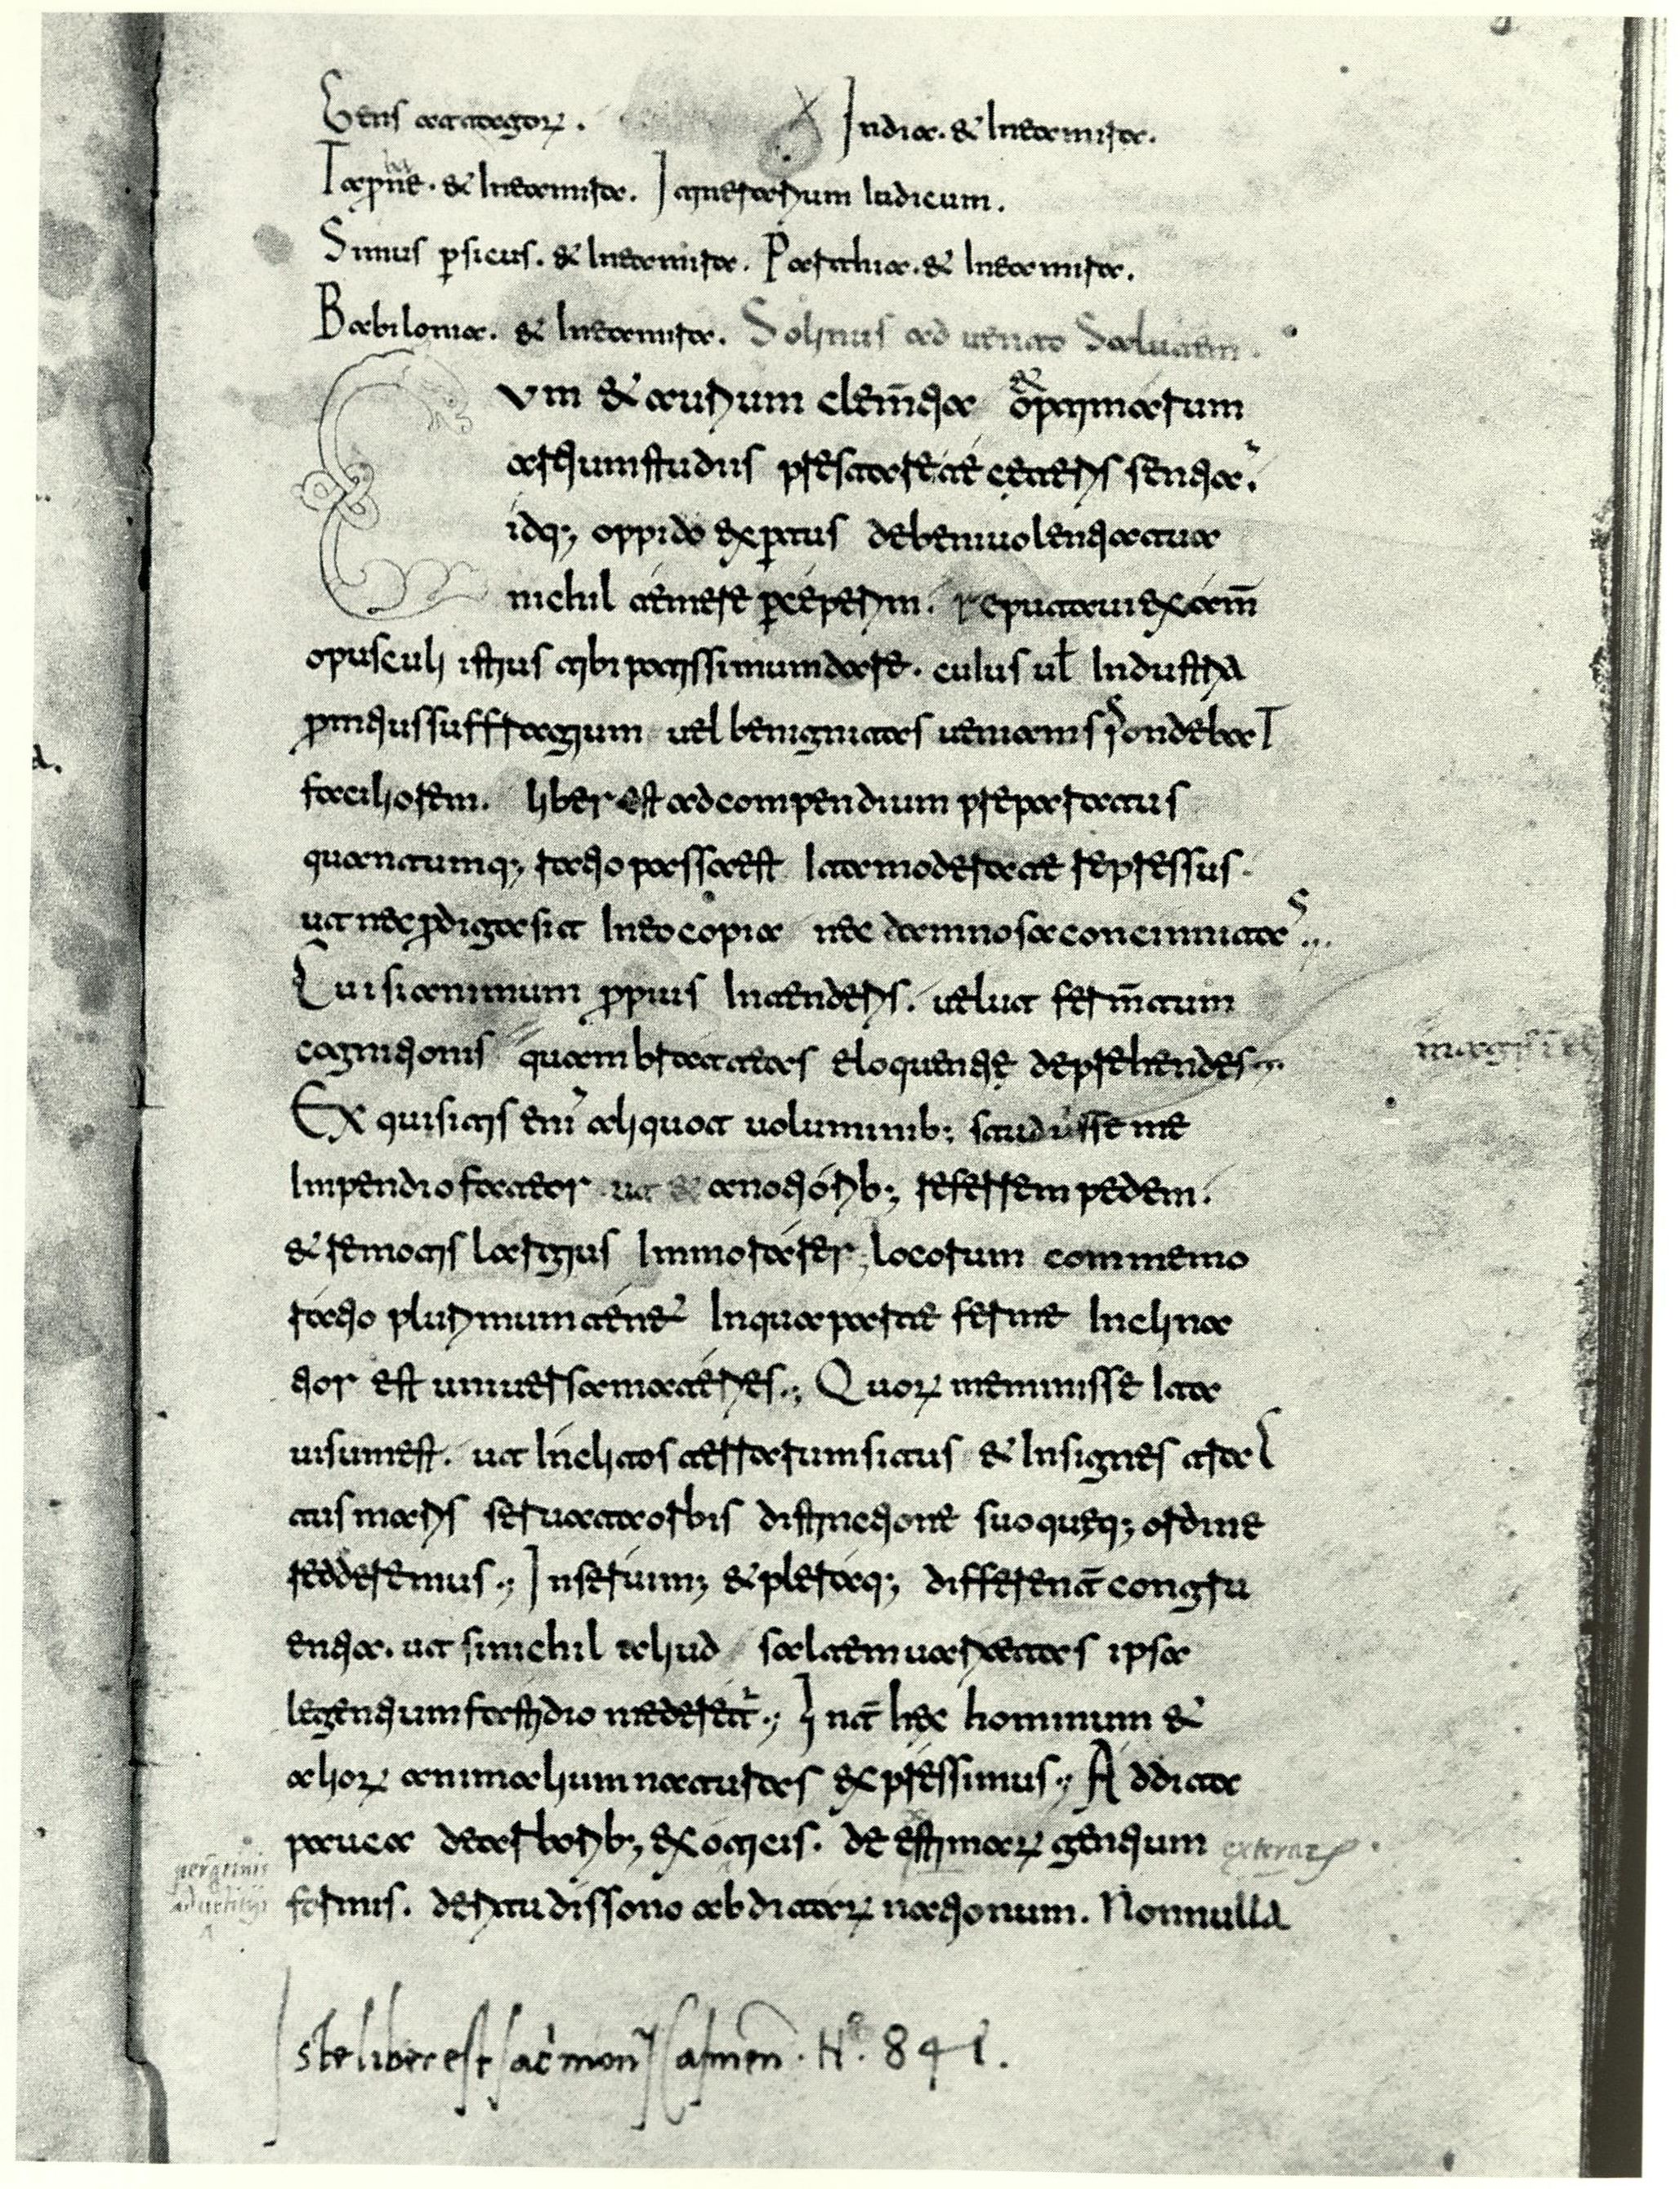 Gens Indiа. & In ea mira.
Tapne. & In ea mira. Itinerarium Indicum.
Sinus ꝑsicus. & In ea mira. Parthia. & In ea mira.
Babilonia. & In ea mira. Solinus advento Salutem.
Cum & aurium clem̄tia & optimarum
artium studiis prestare te ceteris sentia.
idq; oppido exꝑtus de beniuolentia tua
nichil temere ꝑceperim. reputaui exam̄
opusculi istius tibi potissimum dare. cuius ul̄ Industria
ꝓmtius suffragium uel benignitas ueniam spondebaT
faciliorem. liber est ad compendium preparatus
quantumq; ratio passa est Ita moderate repressus
ut nec ꝓdiga sit In eo copia nec damnosa concinnitas
Cui si animum ꝓpius Intenderis. uelut ferm̄tum
cognitionis quam bratteas eloquentię deprehendes
Exquisitis eni aliquot uoluminib; studuisse me
Impendio fateor ut & a notiorib; referrem pedem.
& remotis largius Immorarer, locorum commemo
ratio plurimum tenet In qua parte ferme Inclina
tior est uniuersa materies.; Quorꝝ meminisse Ita
uisum est. ut Inclitos terrarum situs & Insignes trac
tus maris seruata orbis distinctione suo quęq; ordine
redderemus.; Inseruim; & pleraq; differenter congru
entia. ut si nichil aliud saltem uarietas ipsa
legentium fastidio mederet.; Int̄ hęc hominum &
aliorꝝ animalium naturas expressimus.; Addita
pauca de arborib; exoticis. de extimarꝝ gentium exterarꝝ
formis. de ritu dissono abditarꝝ nationum. Nonnulla
peregrinis
aduertitijs
Iste liber est sac̄ mon̄ij Casinen̄. N°. 841.